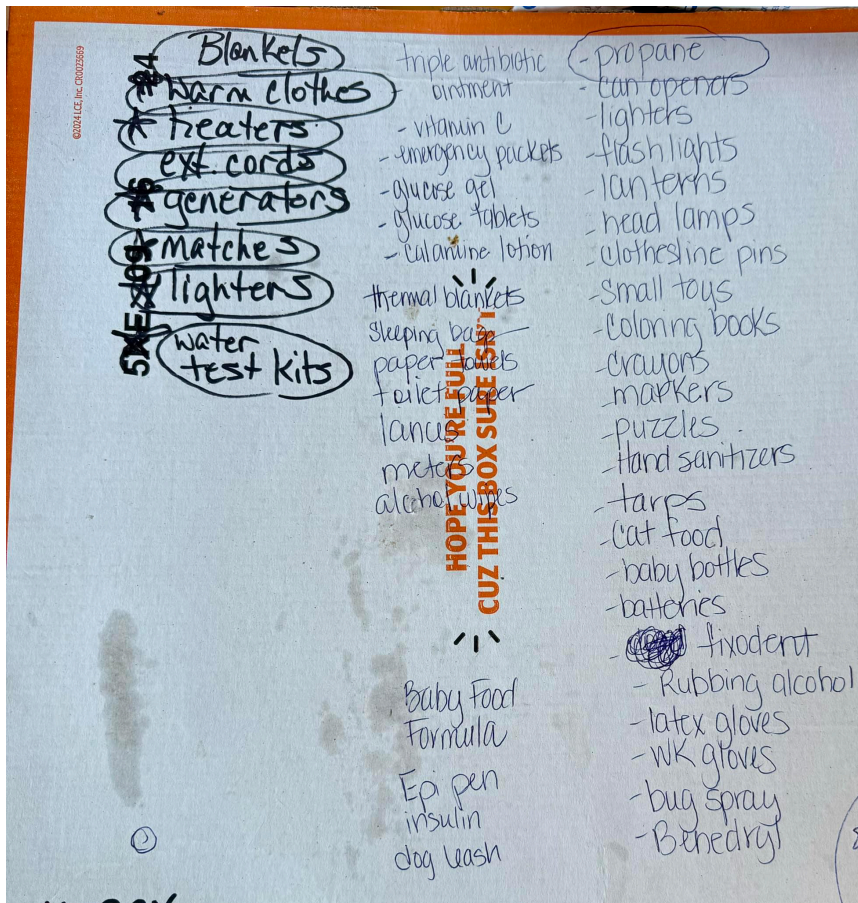 ©2024 LCE, Inc. CR0023669
Blankets
#4
Warm clothes
* heaters
ext. cords
generators
matches
lighters
water
test kits
triple antibiotic
ointment
- vitamin C
- emergency packets
- glucose gel
- glucose tablets
- Calamine lotion
thermal blankets
Sleeping bags
paper towels
toilet paper
lances
meters
alcohol wipes
HOPE YOU'RE FULL
CUZ THIS BOX SURE ISN'T
Baby Food
Formula
Epi pen
insulin
dog leash
- propane
- can openers
- lighters
- flashlights
- lanterns
- head lamps
- clothesline pins
- Small toys
- Coloring books
- Crayons
- markers
- puzzles
- Hand sanitizers
- tarps
- Cat food
- baby bottles
- batteries
- fixodent
- Rubbing alcohol
- latex gloves
- WK gloves
- bug spray
- Benedryl